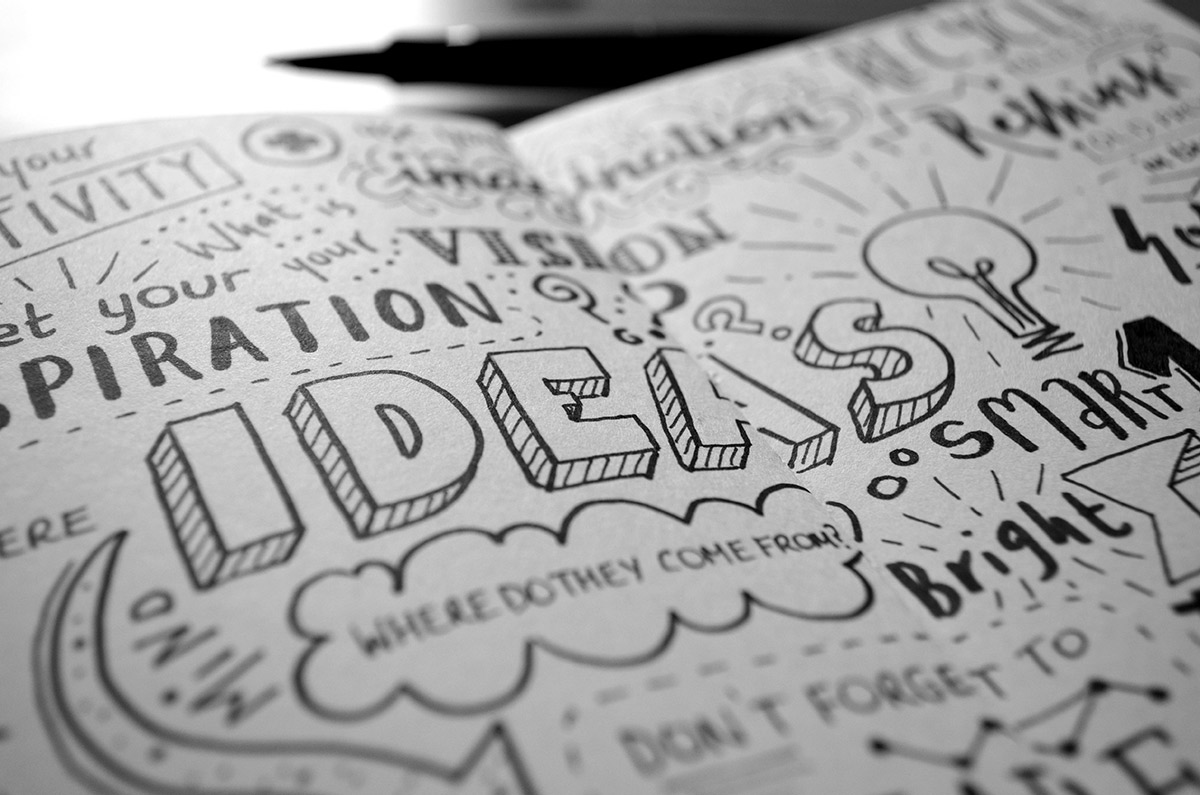 your
TIVITY
imagination
RECYCLE
Rethink
What is
your VISION
et your
SPIRATION
IDEAS
SMART
Bright
ERE
MIND
WHERE DO THEY COME FROM?
DON'T FORGET TO